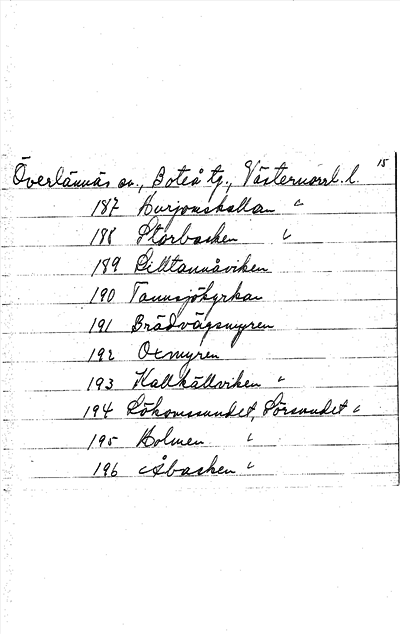 15
Överlännäs sn., Boteå tg., Västernorrl. l.
187 Kurjonskallan "
188 Storbacken "
189 Lilltannåviken
190 Tannsjökyrkan
191 Brådvägsmyren
192 Oxmyren
193 Kallkällviken "
194 Sökomssundet, Sörsundet "
195 Holmen "
196 Åbacken "